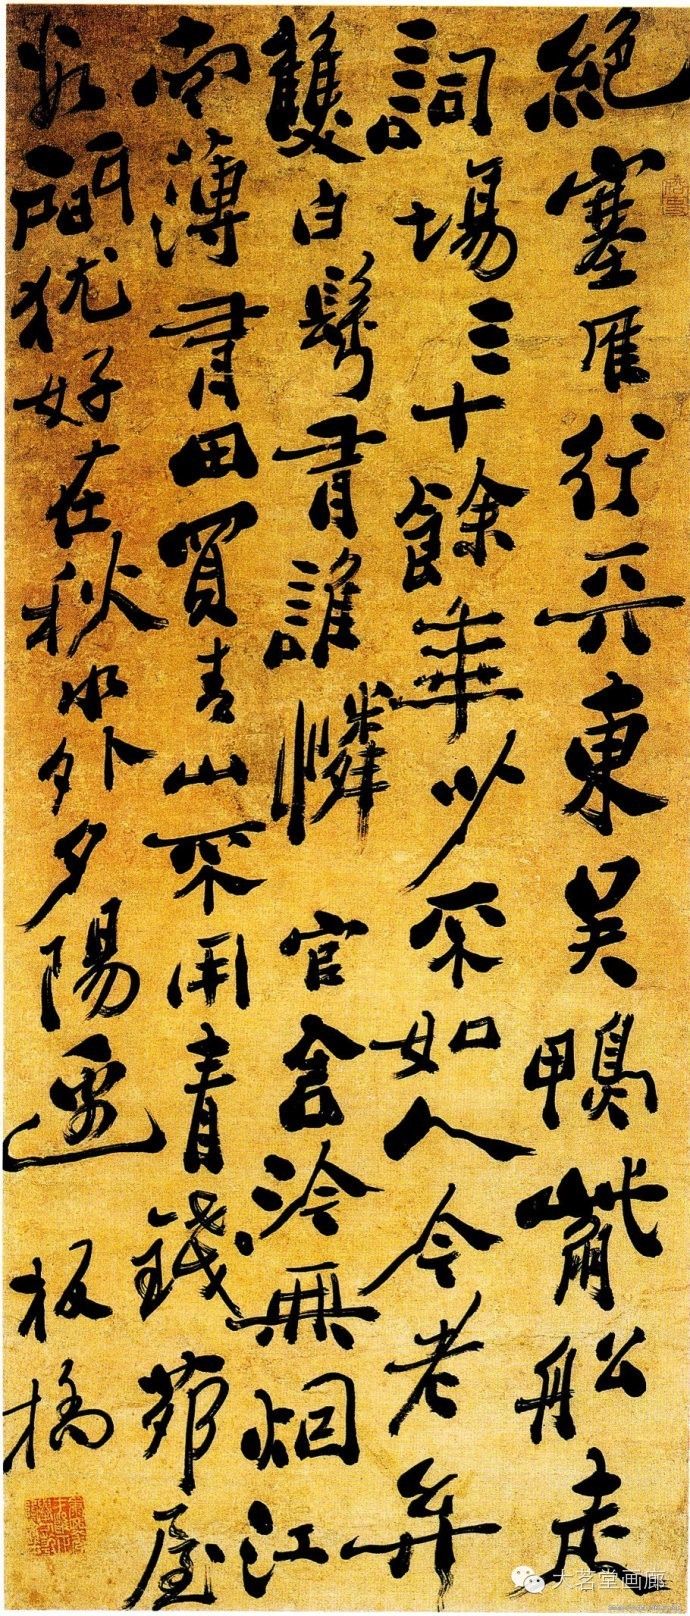 絕塞雁行天東吳鴨觜船走
詞場三十餘年少不如人今老矣
雙白鬢有誰憐官舍冷無烟江
南薄有田買青山不用青錢茆屋
數間猶好在秋水外夕陽邊 板橋
大茗堂画廊